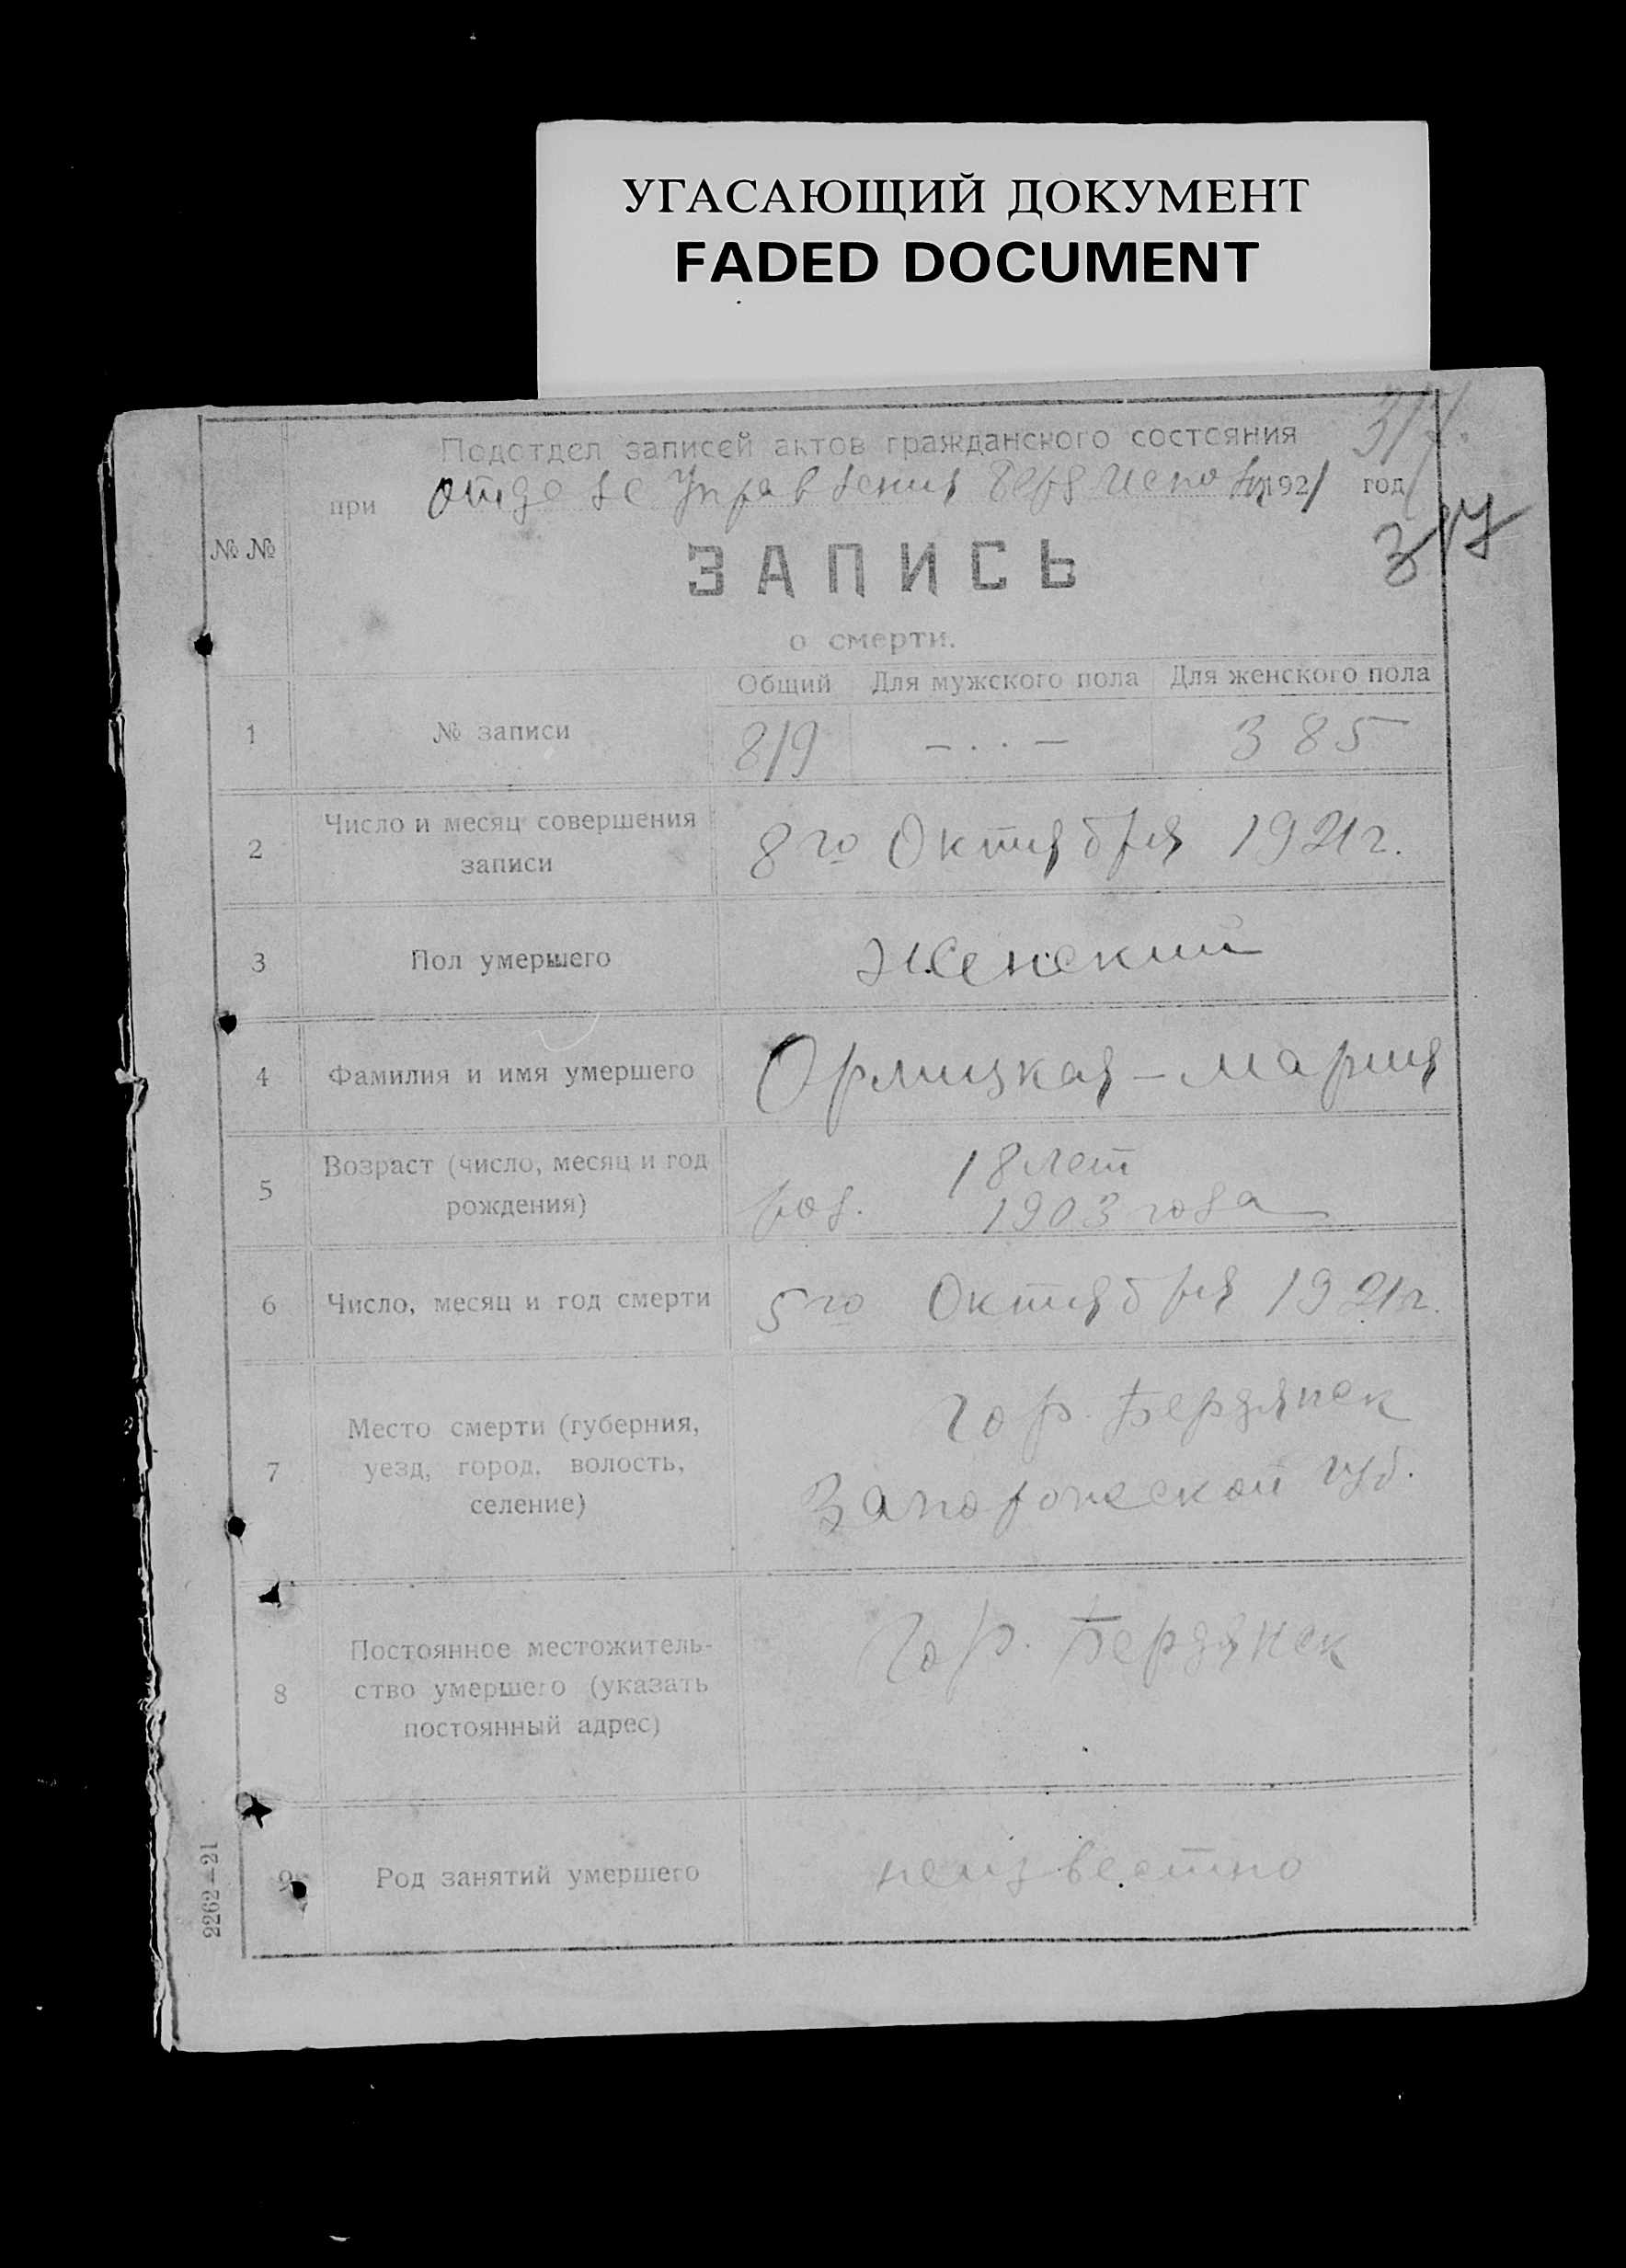 УГАСАЮЩИЙ ДОКУМЕНТ
FADED DOCUMENT
317.
Подотдел записей актов гражданского состояния
при отделе Управления 1921 год
317
№ №
ЗАПИСЬ
о смерти.
Общий Для мужского пола Для женского пола
1 № записи 819 — . . — 385
2 Число и месяц совершения
записи
8го Октября 1921г.
3 Пол умершего Женский
4 Фамилия и имя умершего Орлицкая – Мария
5 Возраст (число, месяц и год
рождения)
18 лет
род. 1903 года
6 Число, месяц и год смерти 5го Октября 1921г.
7 Место смерти (губерния,
уезд, город, волость,
селение)
Гор. Бердянск
Запорожской губ.
8 Постоянное местожитель-
ство умершего (указать
постоянный адрес)
Гор. Бердянск
9 Род занятий умершего неизвестно
2262—21